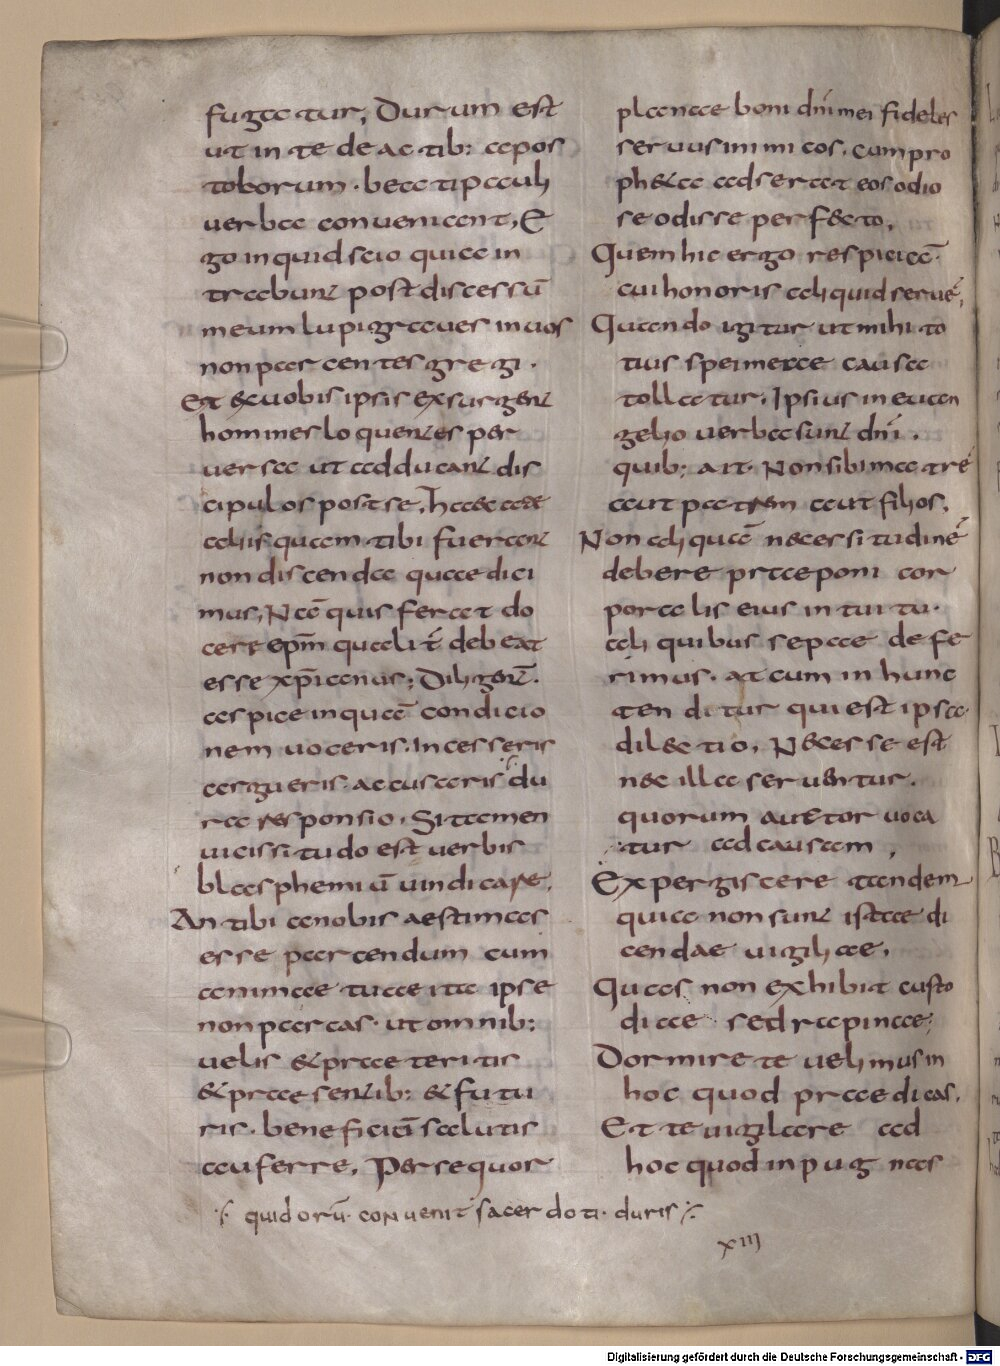 fugatur; Durum est
ut in te de actib: apos
tolorum. beati pauli
verba conveniant, E
go inquid scio quia in
trabunt post discessū
meum lupi graves in vos
non parcentes gregi.
Et ex vobis ipsis exsurgent
homines loquentes per
versa ut adducant dis
cipulos post se, haec ade
aliis quam tibi fuerant
non discenda quae dici
mus, Nā quis ferat do
cere epm̄ qualit̄ debeat
esse xp̄ianus; Diligent̄.
aspice in quā condicio
nem voceris. Incesseris
argueris. accusaris du
ra responsio, Si tamen
vicissitudo est verbis
blasphemiū vindicare,
An tibi a nobis aestimas
esse parcendum cum
animae tuae ita ipse
non parcas. ut omnib:
velis & praeteritis
& praesentib: & futu
ris. beneficiū salutis
auferre, Persequor
plane boni dn̄i mei fideles
servus inimicos. cum pro
ph&a adserat eos odio
se odisse perf&cto,
Quem hic ergo respiciā.
cui honoris aliquid servē,
Quando igitur ut mihi to
tius spei meae causa
tollatur. Ipsius in evan
gelio verba sunt dn̄i.
quib: ait. Non sibi matrē
aut patrem aut filios.
Non aliquā necessitudinē
debere praeponi cor
poralis eius intuitu.
aliquibus sepae defe
rimus. at cum in hunc
tenditur qui est ipsa
dilectio, N&cesse est
n&c illa serventur.
quorum auctor voca
tur ad causam,
Expergiscere tandem
quia non sunt istae di
cendae vigiliae,
Quas non exhibit custo
diae sed rapinae;
Dormire te velimus in
hoc quod praedicas.
Et te vigilare ad
hoc quod inpugnas
·/. quid orū. convenit sacerdoti. duris ·/.
xiii
Digitalisierung gefördert durch die Deutsche Forschungsgemeinschaft - DFG